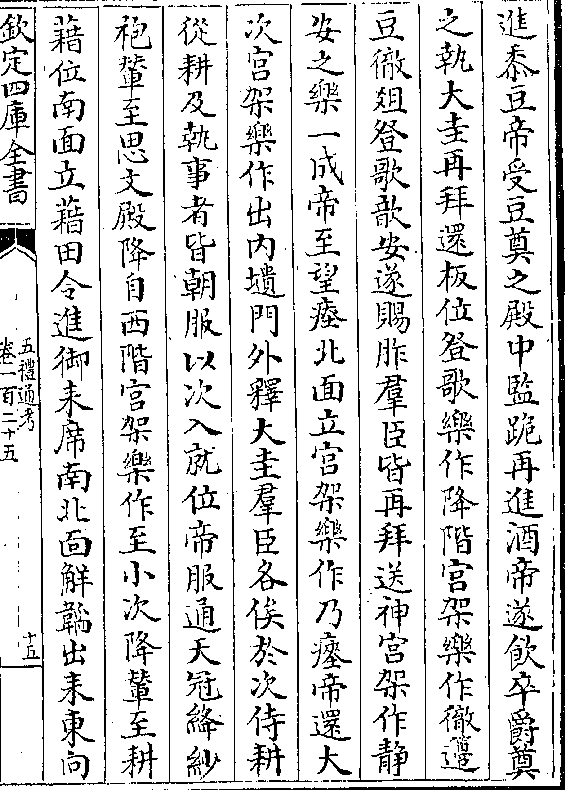 進黍豆帝受豆奠之殿中監跪再進酒帝遂飲卒爵奠
之執大圭再拜還板位登歌樂作降階宫架樂作徹籩
豆徹俎登歌歆安遂賜胙羣臣皆再拜送神宫架作静
安之樂一成帝至望瘞北面立宫架樂作乃瘞帝還大
次宫架樂作出内壝門外釋大圭羣臣各俟於次侍耕
從耕及執事者皆朝服以次入就位帝服通天冠絳紗
袍輦至思文殿降自西階宫架樂作至小次降輦至耕
藉位南面立藉田令進御耒席南北面解韜出耒東向
欽定四庫全書
五禮通考
卷一百二十五
十五